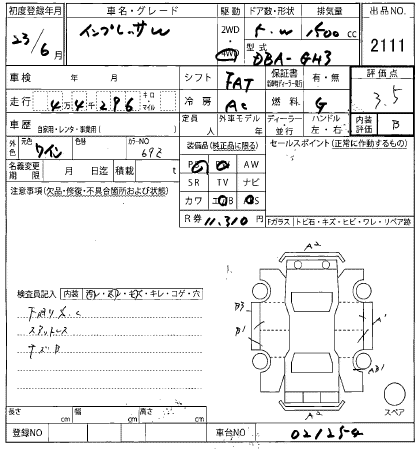 初度登録年月 車名・グレード 駆動 ドア数・形状 排気量 出品NO.
23/6月 インプレッサW 2WD 4WD 5.W 1500 cc 2111
型式 DBA-GH3
車検 年 月 シフト FAT 保証書 有・無 評価点
走行 4万4千296 キロ マイル 冷房 AC 燃料 G 3.5
車歴 自家用・レンタ・事業用( ) 定員 人 外車モデル 年 ディーラー・並行 ハンドル 左・右 内装評価 B
外色 元色 ワイン 色替 カラーNO 69Z 装備品(純正品に限る) セールスポイント(正常に作動するもの)
名義変更期限 月 日迄 積載 t PS PW AW
注意事項(欠品・修復・不具合箇所および状態) SR TV ナビ
カワ エアB ABS
R券 11,310円 Fガラス トビ石・キズ・ヒビ・ワレ・リペア跡
A2
検査員記入 内装 汚レ・スレ・モゲ・キレ・コゲ・穴
B3
下廻りサ.C
B1 A1
スタットレス
キズB
AB1
A2 スペア
長さ cm 幅 cm 高さ cm
登録NO 車台NO 021254